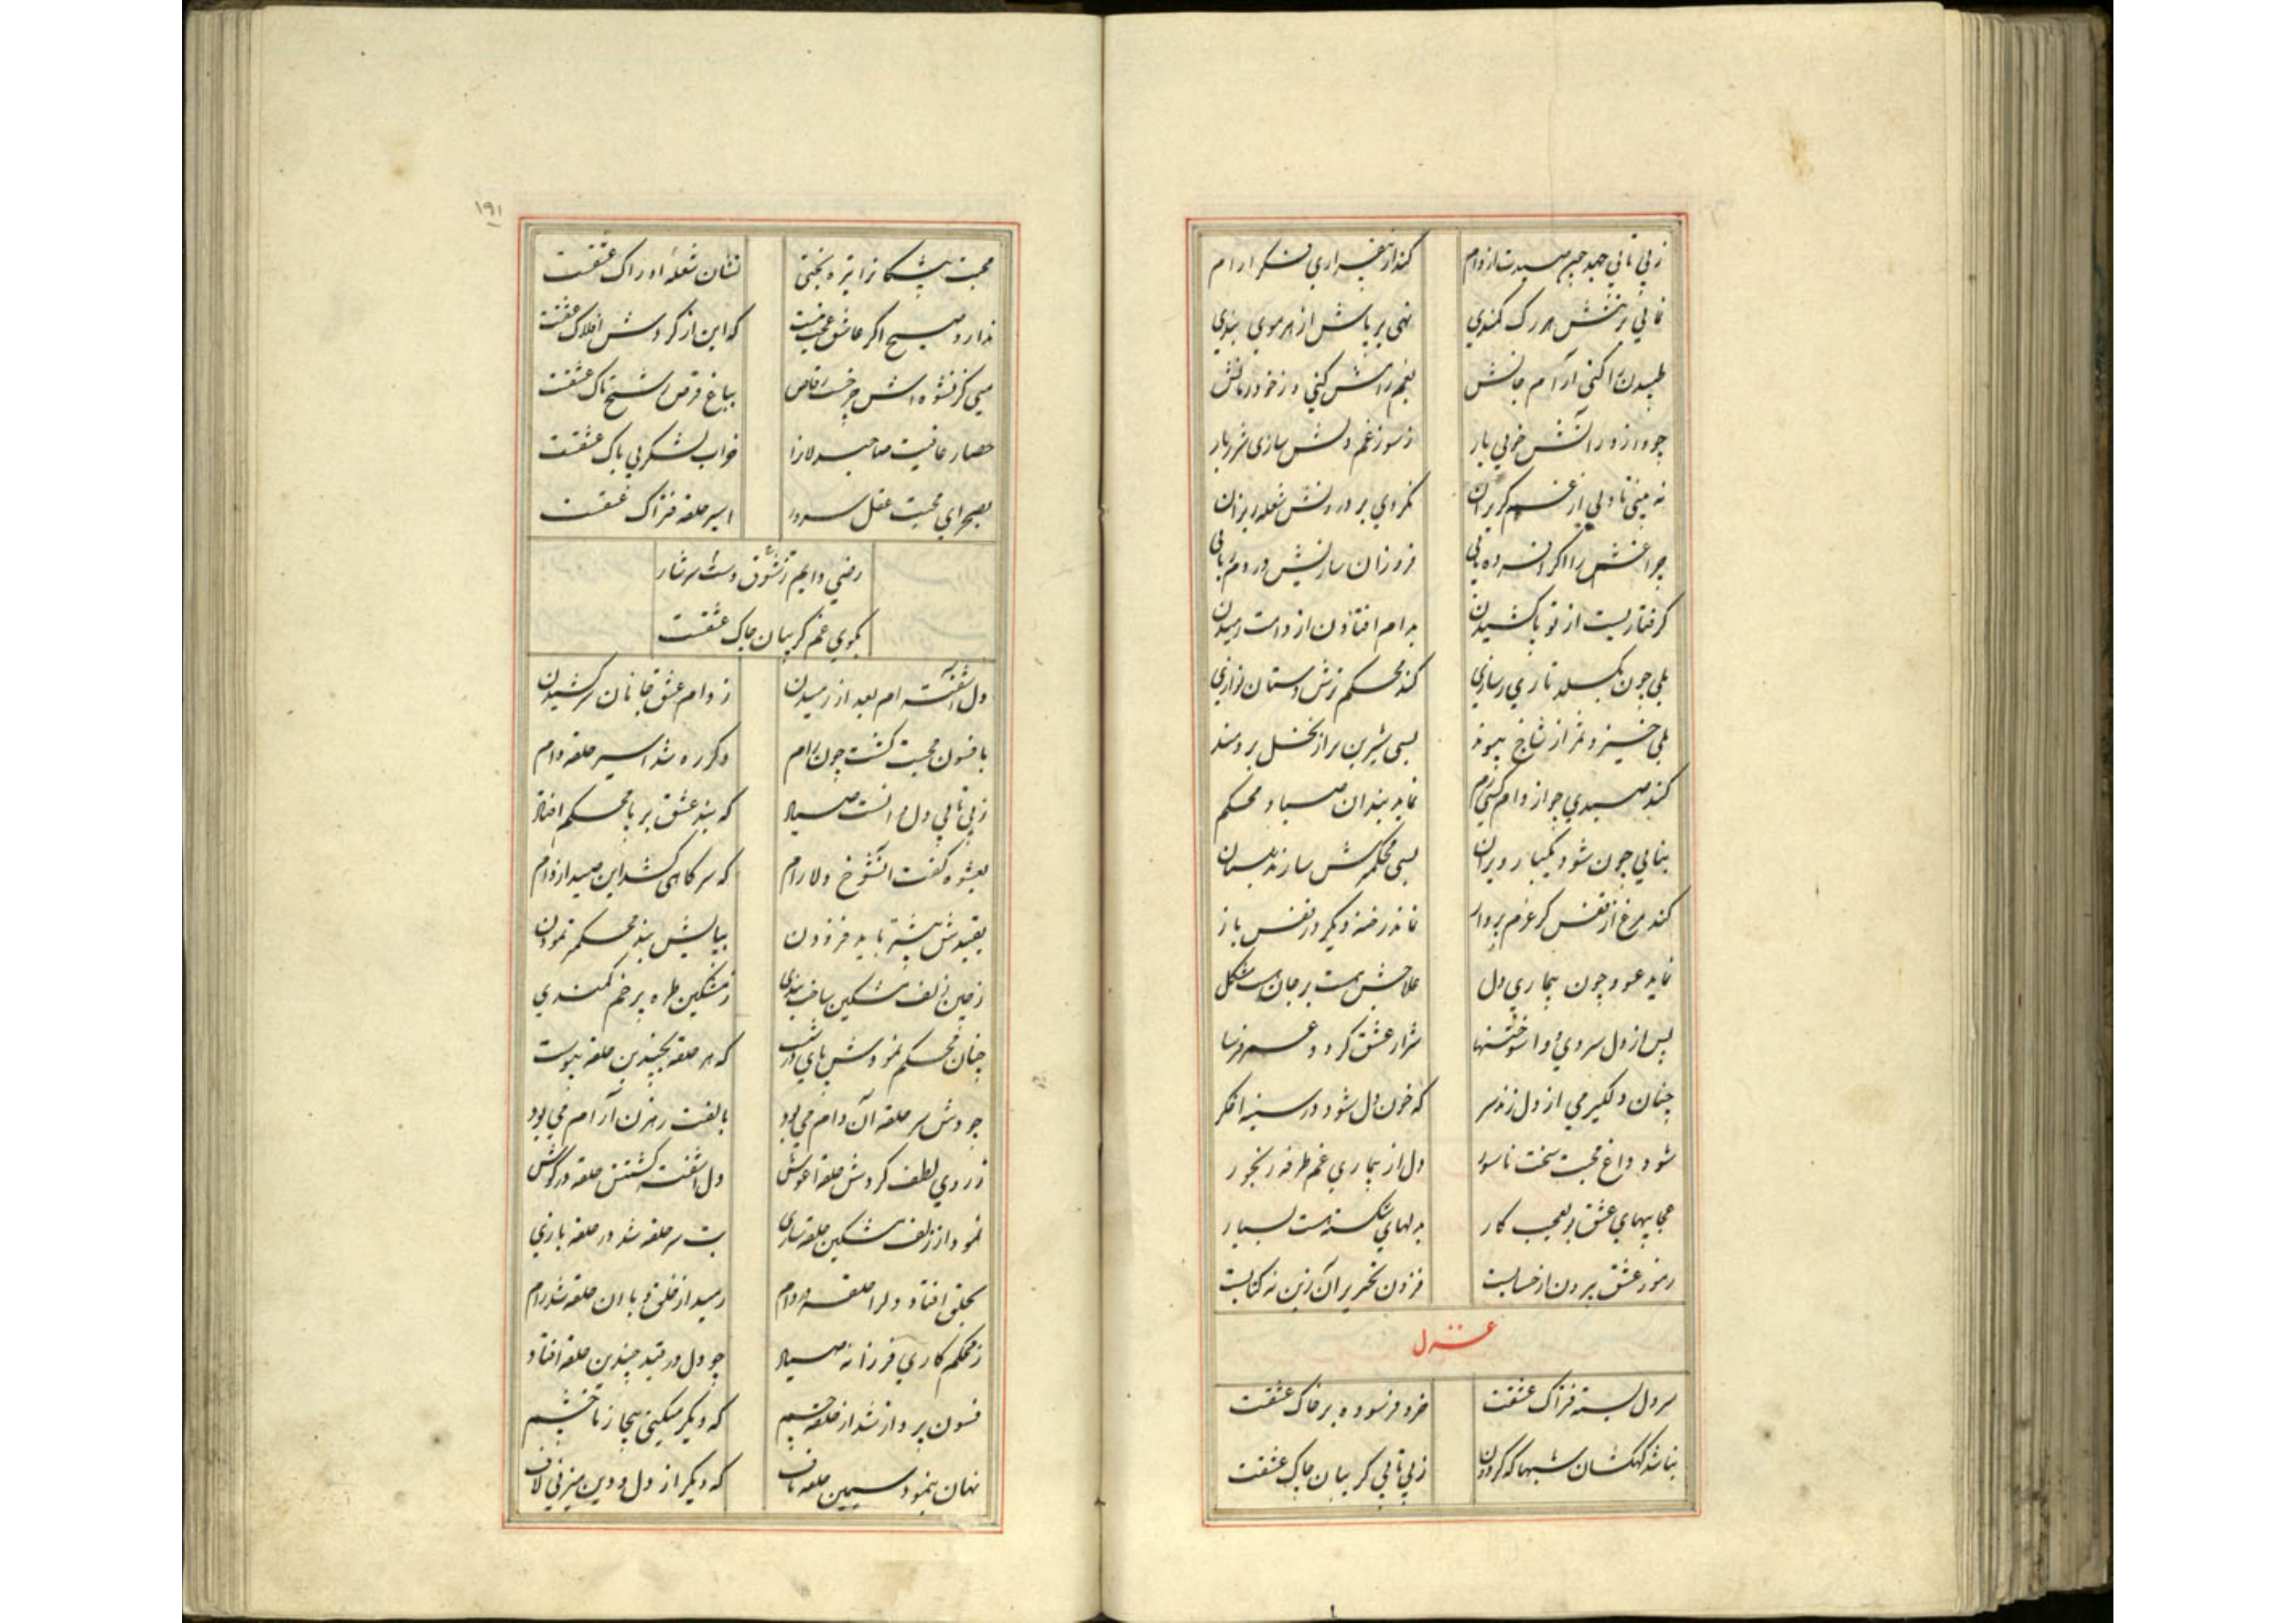 ز بی تابی جهد چون صیدت از دام کند از بیقراری فکر آرام
نمائی بر تنش هر رگ کمندی نهی بر پاش از هر موی بندی
طپیدن را کنی آرام جانش
چو ورزد در آتش خوئی یار ز سوز غم دلش سازی شرربار
نه بینی تا دلی از غم گریزان نگردی بر درونش شعله ریزان
چراغش را اگر افسرده یابی فروزان سازیش در دم بتابی
گرفتاریست از تو پا کشیدن بدام افتادن از دامت رمیدن
بلی چون بگسلد تاری ز سازی کند محکم ترش دستان نوازی
بلی خیزد ثمر از شاخ پیوند بسی شیرین تر از نخل برومند
کند صیدی چو از دام کسی رم نماید بند آن صیاد محکم
بنایی چون شود یکبار ویران بسی محکمترش سازند بنیان
کند مرغ از قفس گر عزم پرواز نماند رخنه دیگر در قفس باز
نماید عود چون بیماری دل علاجش هست بر جان مشکل
پس از دل سردی و واسوختنها شرار عشق گردد عمر فرسا
چنان دلگیر می از دل زند سر که خون دل شود در سینه اخگر
شود داغ محبت سخت ناسور دل از بیماری غم طرفه رنجور
عجایبهای عشق بوالعجب کار بدلهای شکسته هست بسیار
رموز عشق بیرون از حسابست فزون تحریر آن زین نه کتابست
غزل
سر دل بسته فتراک عشقت خرد فرسوده بر خاک عشقت
نباشد کهکشان شبها که گردون ز بی تابی گریبان چاک عشقت
۱۹۱
محبت پیشکانرا تیره بختی نشان شعله ادراک عشقت
ندارد صبح اگر عاشق عجب نیست که این از گردش افلاک عشقت
میی کز نشوه اش چرخست رقاص بباغ قرص شخ تاک عشقت
حصار عافیت صاحبدلانرا خراب لشکر بی باک عشقت
بصحرای محبت عقل سرور اسیر حلقه فتراک عشقت
رضی دایم ز شوق دست سرشار
بکوی غم گریبان چاک عشقت
دل آشفته ام بعد از رمیدن ز دام عشق جانان سر کشیدن
بافسون محبت گشت چون رام دگر ره شد اسیر حلقه دام
ز بی تابی دل دانست صیاد که بند عشق بر پا محکم افتاد
بعشوه گفت آن شوخ دلارام که سر گاهی کشد این صید از دام
بقیدش بیشتر باید فزودن بپایش بند محکمتر نمودن
ز چین زلف مشکین ساخت بندی ز مشکین طره پر خم کمندی
چنان محکم نمودش پای در شست که هر حلقه بچندین حلقه پیوست
چو دوش سر حلقه آن دام می بود بالفت رهزن آرام می بود
ز روی لطف کردش حلقه آغوش دل آشفته گشتش حلقه در گوش
نمود از زلف مشکین حلقه سازی بت سر حلقه شد در حلقه بازی
بحلق افتاد دلرا حلقه دام رمید از خلق و با آن حلقه شد رام
ز محکم کاری فرزانه صیاد چو دل در قید چندین حلقه افتاد
فسون پرداز شد از حلقه چشم که دیگر میکنی بیجا ز ما خشم
نهان بنمود سیمین حلقه ناف که دیگر از دل و دین میزنی لاف